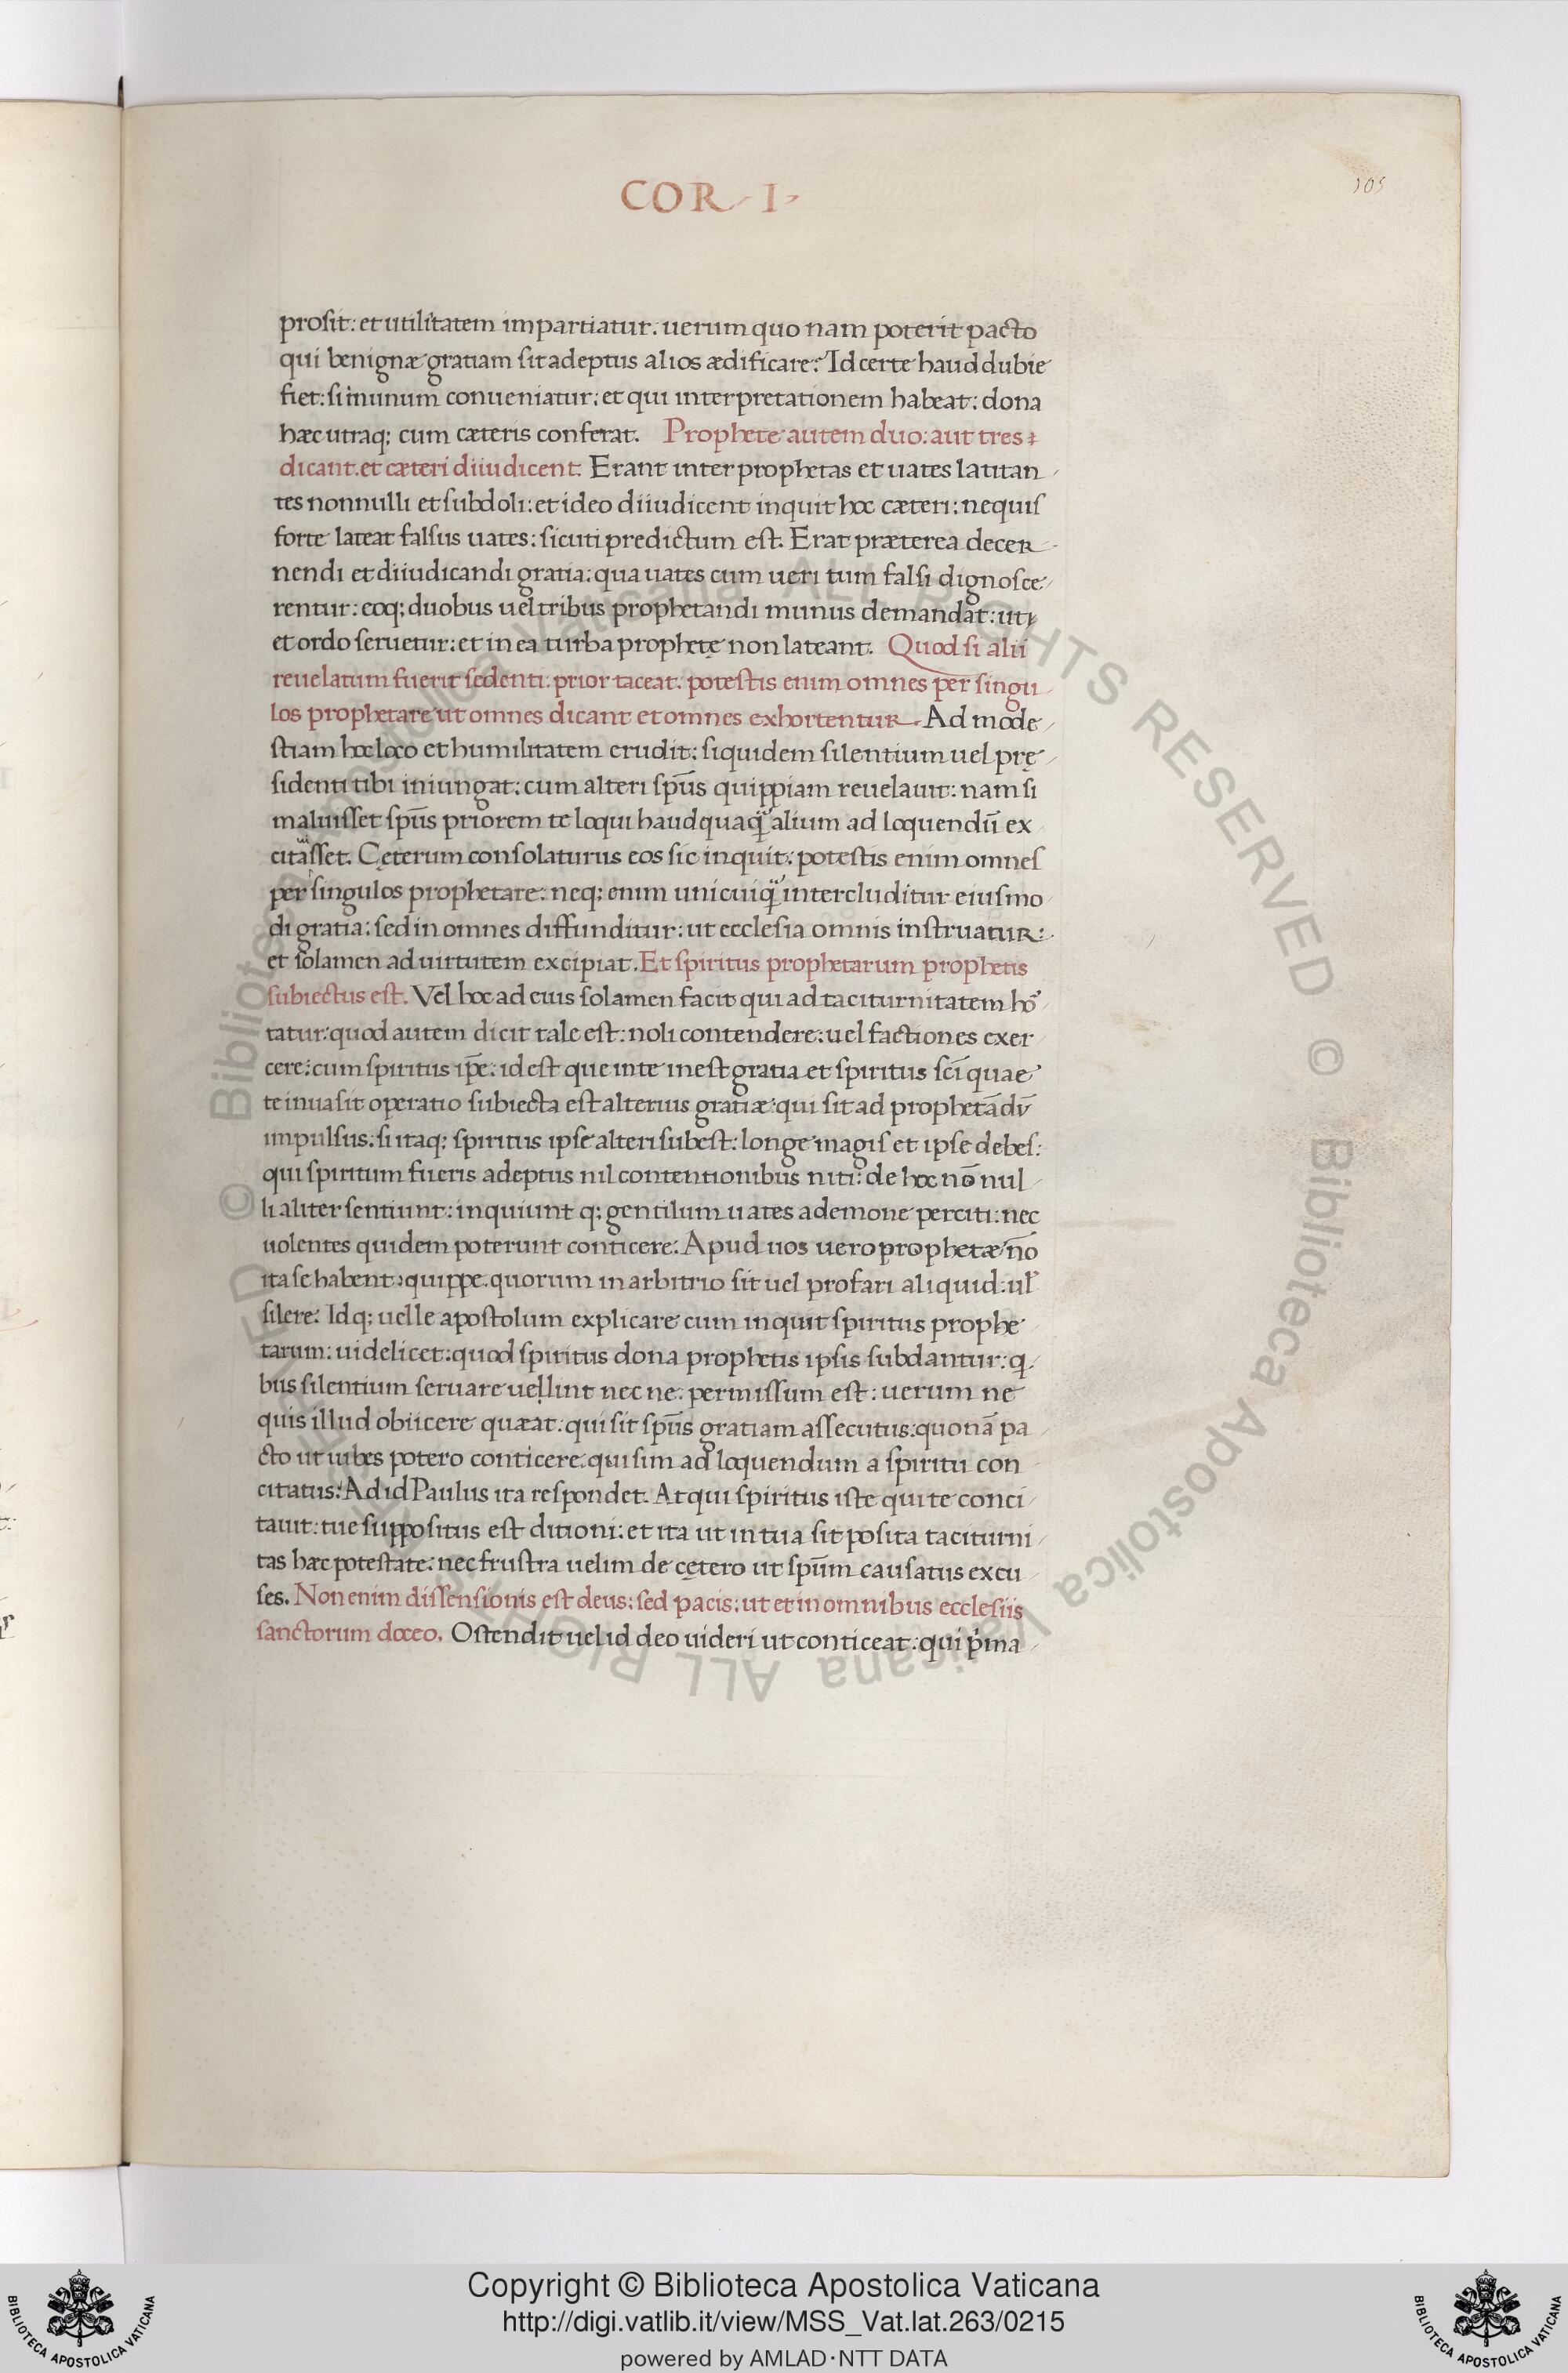 COR I
105
prosit: et utilitatem impartiatur. uerum quo nam poterit pacto
qui benignæ gratiam sit adeptus alios ædificare? Id certe haud dubie
fiet: si in unum conueniatur: et qui interpretationem habeat: dona
hæc utraq; cum cæteris conferat. Prophete autem duo: aut tres
dicant. et cæteri diiudicent. Erant inter prophetas et uates latitan
tes nonnulli et subdoli: et ideo diiudicent inquit hoc cæteri: nequis
forte lateat falsus uates: sicuti predictum est. Erat præterea decer
nendi et diiudicandi gratia: qua uates cum ueri tum falsi dignosce
rentur: eoq; duobus uel tribus prophetandi munus demandat: uti
et ordo seruetur: et in ea turba prophetę non lateant. Quod si alii
reuelatum fuerit sedenti: prior taceat. potestis enim omnes per singu
los prophetare ut omnes dicant et omnes exhortentur. Ad mode
stiam hoc loco et humilitatem erudit: siquidem silentium uel prę
sidenti tibi iniungat: cum alteri sp̄us quippiam reuelauit: nam si
maluisset sp̄us priorem te loqui haud quaq̃ alium ad loquendū ex
citasset. Cęterum consolaturus eos sic inquit: potestis enim omnes
per singulos prophetare: neq; enim unicuiq̃ intercluditur eiusmo
di gratia: sed in omnes diffunditur: ut ecclesia omnis instruatur:
et solamen ad uirtutem excipiat. Et spiritus prophetarum prophetis
subiectus est. Vel hoc ad eius solamen facit qui ad taciturnitatem ho
tatur: quod autem dicit tale est: noli contendere: uel factiones exer
cere: cum spiritus ip̄e: id est que in te inest gratia et spiritus sc̄i quae
te inuasit operatio subiecta est alterius gratiæ: qui sit ad prophetādū
impulsus: si itaq; spiritus ipse alteri subest: longe magis et ipse debes:
qui spiritum fueris adeptus nil contentionibus niti: de hoc nō nul
li aliter sentiunt: inquiunt q; gentilum uates a demone perciti: nec
uolentes quidem poterunt conticere: Apud uos uero prophetæ nō
ita se habent: quippe quorum in arbitrio sit uel profari aliquid: ul̃
silere: Idq; uelle apostolum explicare cum inquit spiritus prophe
tarum: uidelicet: quod spiritus dona prophetis ipsis subdantur: q
bus silentium seruare uellint nec ne: permissum est: uerum ne
quis illud obiicere quæat: qui sit sp̄us gratiam assecutus: quonā pa
cto ut iubes potero conticere: qui sim ad loquendum a spiritu con
citatus? Ad id Paulus ita respondet. At qui spiritus iste qui te conci
tauit: tue suppositus est ditioni: et ita ut in tua sit posita taciturni
tas hæc potestate: nec frustra uelim de cętero ut sp̄um causatus excu
ses. Non enim dissensionis est deus: sed pacis: ut et in omnibus ecclesiis
sanctorum doceo. Ostendit uel id deo uideri ut conticeat: qui p̓ma
Copyright © Biblioteca Apostolica Vaticana
http://digi.vatlib.it/view/MSS_Vat.lat.263/0215
powered by AMLAD·NTT DATA
BIBLIOTECA APOSTOLICA VATICANA
BIBLIOTECA APOSTOLICA VATICANA
© Biblioteca Apostolica Vaticana ALL RIGHTS RESERVED © Biblioteca Apostolica Vaticana ALL RIGHTS RESERVED